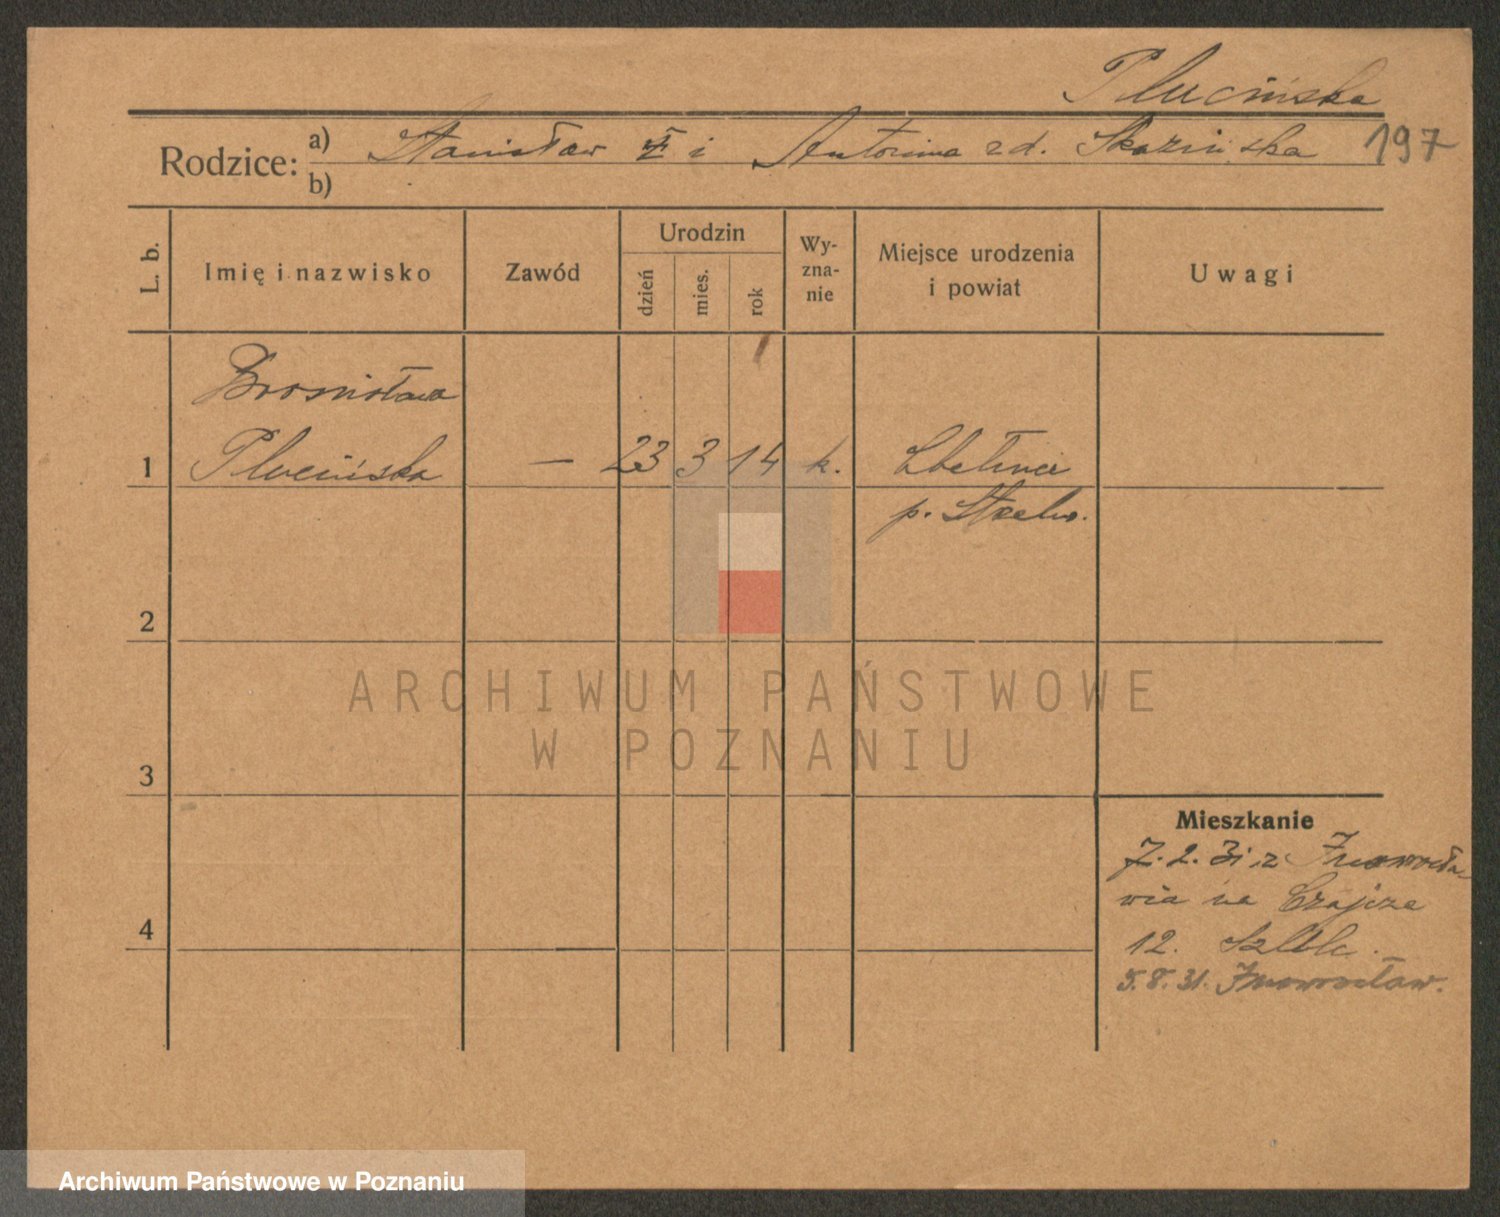 Plucińska
Rodzice: a) Stanisław i Antonina zd. Skazińska 197
b)
L. b.
Imię i nazwisko
Zawód
Urodzin
dzień
mies.
rok
Wy-
zna-
nie
Miejsce urodzenia
i powiat
Uwagi
Bronisława
1 Plucińska — 23 3 14 k.
p. Strzelno.
2
3
4
Mieszkanie
7. 2. 31 z Inowrocła-
wia na
12.
5. 8. 31. Inowrocław.
ARCHIWUM PAŃSTWOWE
W POZNANIU
Archiwum Państwowe w Poznaniu